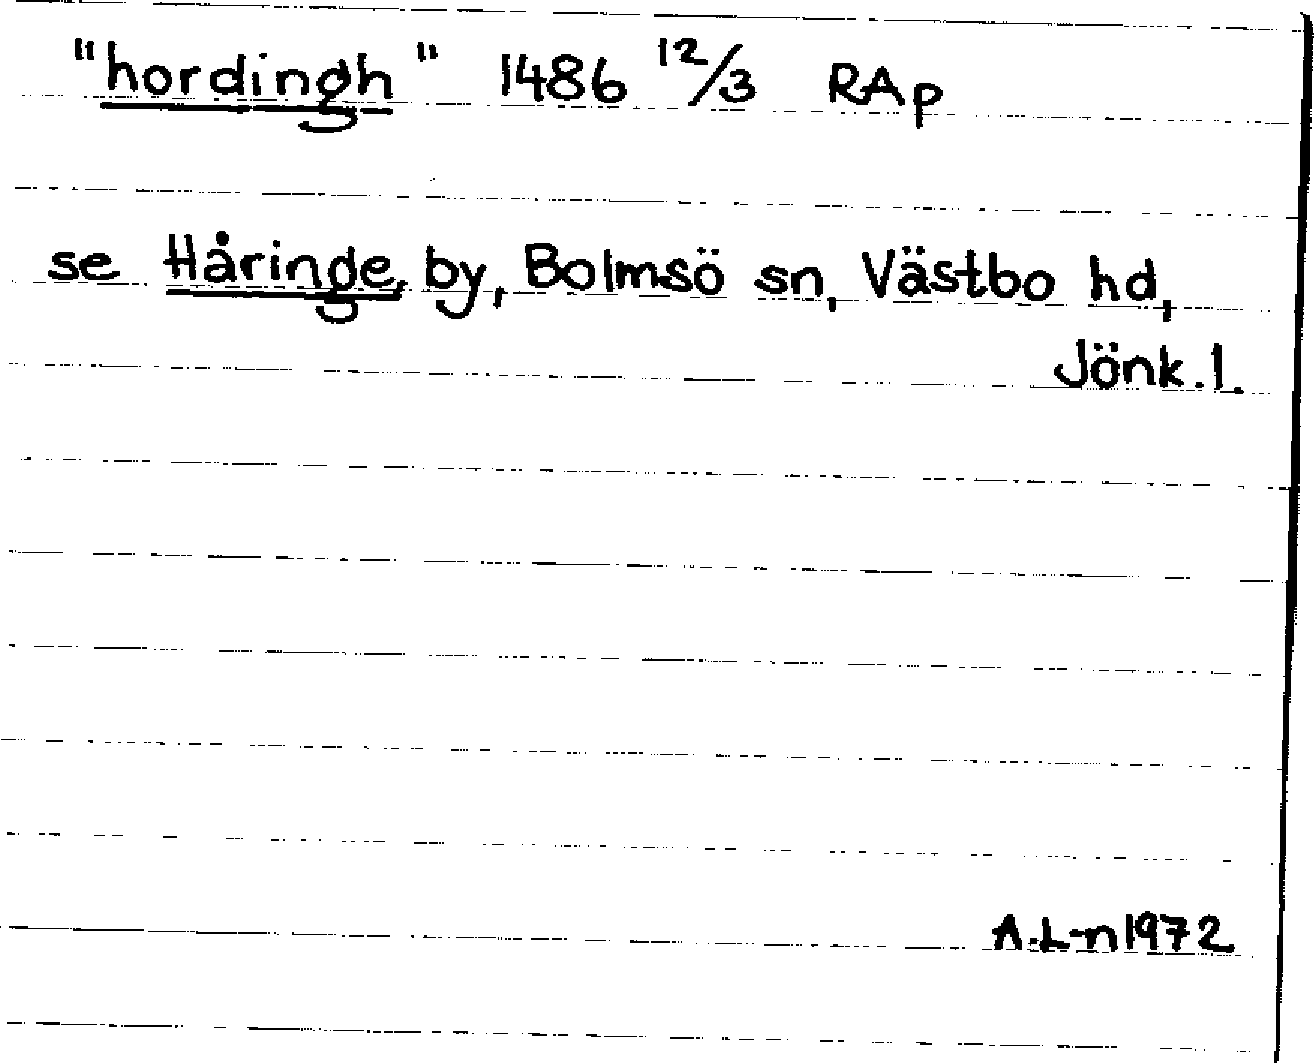 "hordingh" 1486 12/3 RAp
se Håringe, by, Bolmsö sn, Västbo hd,
Jönk.l.
A.L-n 1972